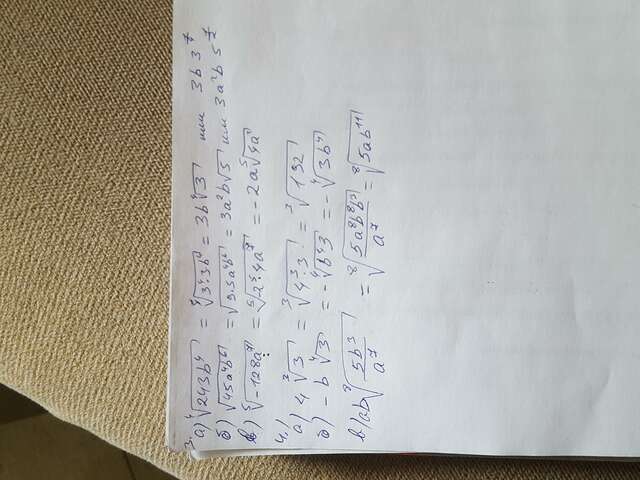 3.
а) ∜243b⁴ = ∜3⁴·3b⁴ = 3b∜3 или 3b 3^¼
б) √45a⁴b⁶ = √9·5a⁴b⁶ = 3a²b√5 или 3a²b 5^½
в) ⁵√-128a⁷ = ⁵√2⁵·4a⁷ = -2a⁵√4a²
4.
а) 4³√3 = ³√4³·3 = ³√192
б) -b∜3 = -∜b⁴3 = -∜3b⁴
в) ab⁸√5b³/a⁷ = ⁸√5a⁸b⁸b³/a⁷ = ⁸√5ab¹¹